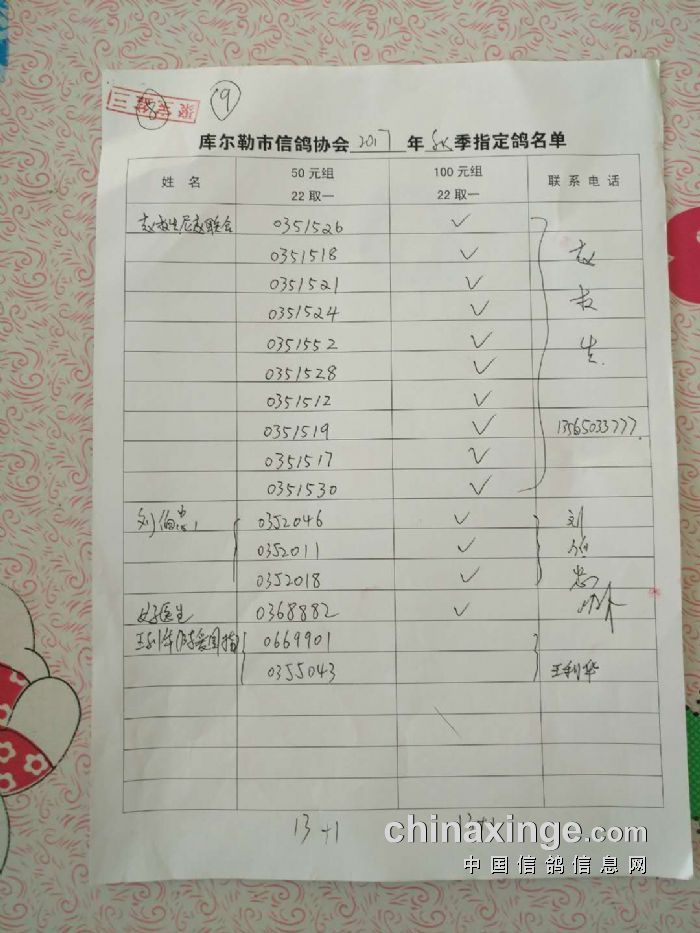 三 奖
⑨
库尔勒市信鸽协会 2017 年 秋 季指定鸽名单
姓 名 50 元组 22 取一 100 元组 22 取一 联系电话
0351526 ✓
0351518 ✓
0351521 ✓
0351524 ✓
0351552 ✓
0351528 ✓
0351512 ✓
0351519 ✓ 13565033777
0351517 ✓
0351530 ✓
刘伯忠 0352046 ✓ 刘
0352011 ✓ 伯
0352018 ✓ 忠
好医生 0368882 ✓
王利华 0669901
0355043 王利华
13+1 13+1
chinaxinge.com
中国信鸽信息网